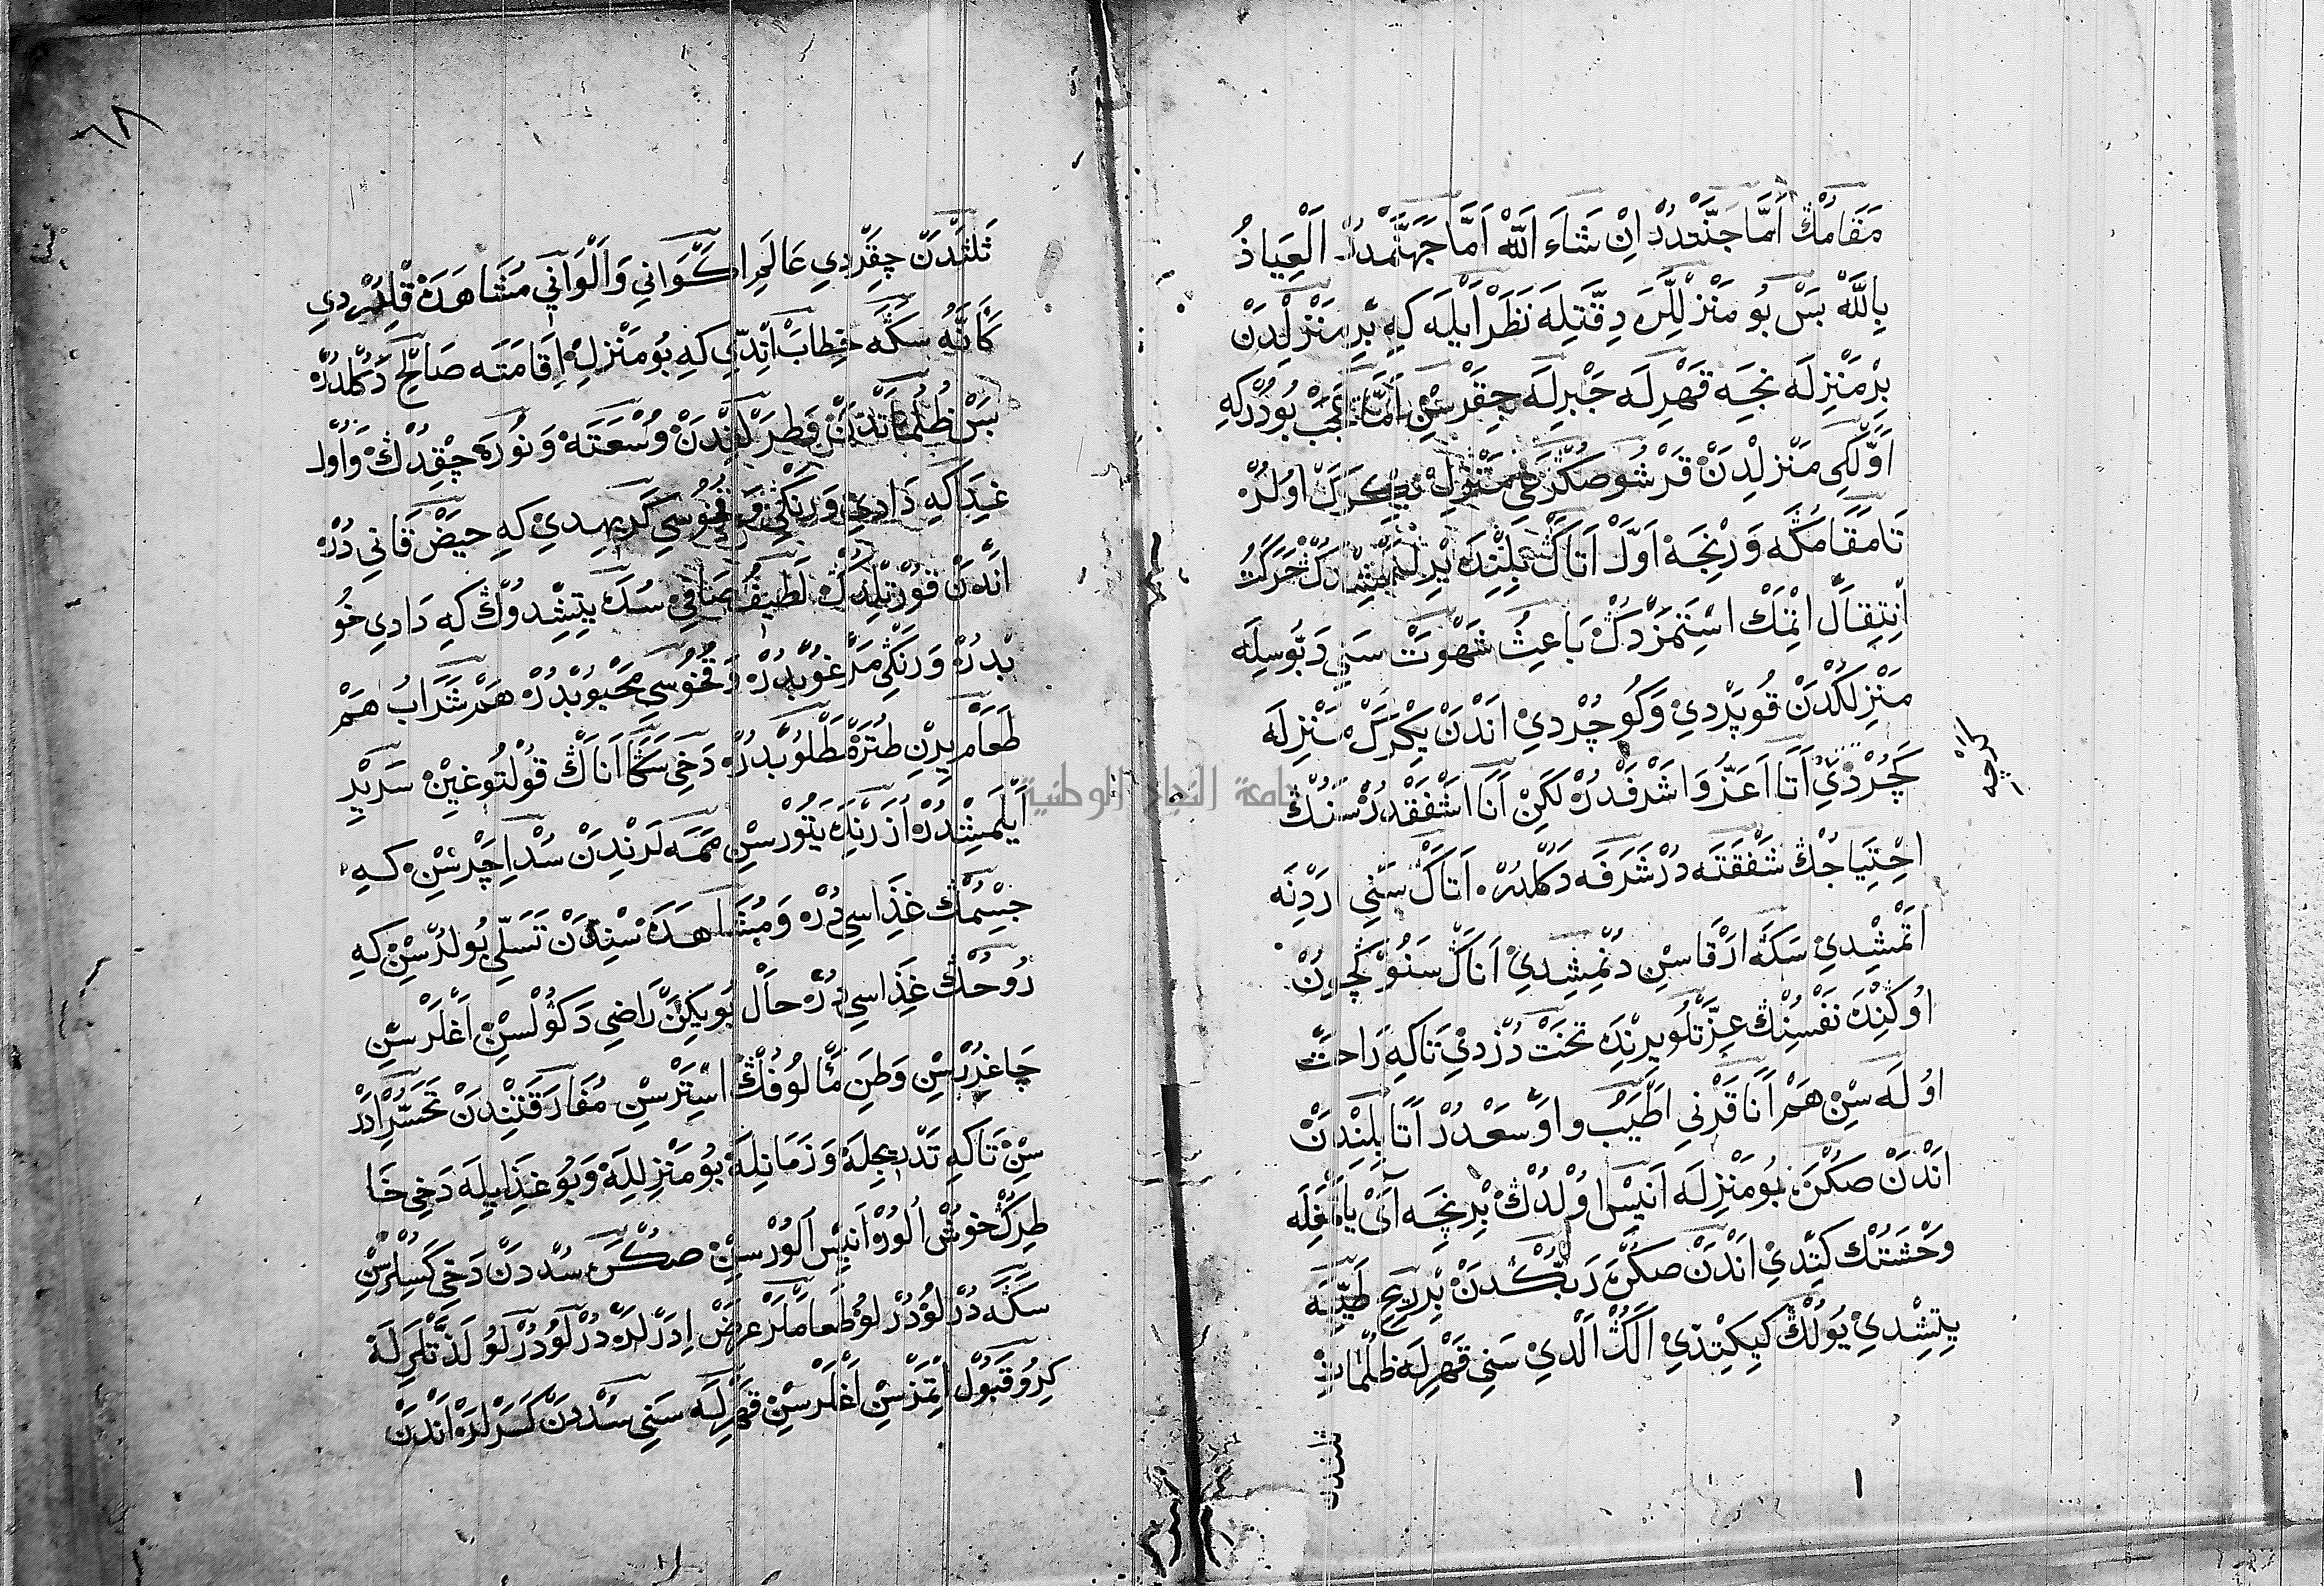 مَقَامُڭْ اَمَّا جَنَّتْدُرْ اِنْ شَاءَ اَللّٰهْ اَمَّا جَهَنَّمْدُرْ اَلْعِيَاذُ
بِاللّٰهْ بَسْ بُو مَنْزِلْلَرَ دِقَّتِلَه نَظَرْ اَيْلَه كِه بِرِ مَنْزِلْدَنْ
بِرْ مَنْزِلَه نِجَه قَهْرِلَه جَبْرِلَه چِقَرْسِنْ اَمَّا عَجَبْ بُودُرْ كِه
اَوَّلْكِي مَنْزِلْدَنْ قَرْشُو صُكْرَكِي يِكْرَكْ اُولُرْ
تَا مَقَامُڭَه وَرِنْجَه اَوَّلْ اَتَاڭْ بَلِنْدَه بِرْ حَرَكَتْ
اِنْتِقَالْ اِتْمَكْ اِسْتَمَزْدُڭْ بَاعِثِ شَهْوَتْ سَنِي دَبُوسِلَه
مَنْزِلُڭْدَنْ قُوپَرْدِي وَكُوچُرْدِي اَنْدَنْ يِكْرَكْ مَنْزِلَه
كَچُرْدِي اَتَا اَعَزُّ وَ اَشْرَفْدُرْ لَكِنْ اَنَا اَشْفَقْدُرْ سَنُڭْ
اِحْتِيَاجُڭْ شَفْقَتَه دُرْ شَرَفَه دَكُلْدُرْ اَتَاڭْ سَنِي اَرْدِنَه
اَتْمِشْدِي سَڭَه اَرْقَاسِنْ دُنْمِشِدِي اَنَاڭْ سَنُوڭْچُونْ
اُوكَنْدَه نَفْسُنُڭْ عِزَّتْلُو يِرِنْدَه تَخْتْ دُزْدِي تَاكِه رَاحَتْ
اُولَه سِنْ هَمْ اَنَا قَرْنِي اَطْيَبُ وَ اَوْسَعْدُرْ اَتَا بَلِنْدَنْ
اَنْدَنْ صُكْرَه بُو مَنْزِلَه اَنِيسْ اُولْدُڭْ بِرْنِچَه آيْ يَامَغِلَه
وَحْشَتُڭْ كِتْدِي اَنْدَنْ صُكْرَه رَبُّڭْدَنْ بِرْ رِيحِ طَيِّبَه
يِتِشْدِي يُولُڭْ كِيكِتْدِي اَلُڭْ اَلْدِي سَنِي قَهْرِلَه ظُلُمَاتِ
ثلثدن
كراچه
٦٨
ثَلثَدَنْ چِقَرْدِي عَالَمِ اَكْوَانِي وَاَلْوَانِي مُشَاهَدَه قِلْدُرْدِي
كَاَنَّهُ سَڭَه خِطَابْ اَنْدِي كِه بُو مَنْزِلْ اِقَامَتَه صَالِحْ دَكُلْدُرْ
بَسْ ظُلُمَاتْدَنْ وَطَرْلِغِنْدَنْ وُسْعَتَه وَ نُورَه چِقْدُڭْ وَ اُولْ
غِدَاكِه دَادِي وَ رَنْكِي وَ قُخُوسِي كَرِيهِدِي كِه حَيْضْ قَانِي دُرْ
اَنْدَنْ قُورْتِلْدُڭْ لَطِيفْ صَافِي سُدَه يِتِشْدُوڭْ كِه دَادِي خُو
بْدُرْ وَ رَنْكِي مَرْغُوبْدُرْ وَ قُخُوسِي مَحْبُوبْدُرْ هَمْ شَرَابْ هَمْ
طَعَامْ يِرِنْ طُتَرْ مَطْلُوبْدُرْ دَخِي سَڭَا اَنَاڭْ قُولْتُوغِيْنْ سَرِيرْ
اَيْلَمِشْدُرْ اُزَرِنَه يَتُورْسِنْ مَمَه لَرِنْدَنْ سُدْ اِچَرْسِنْ كِه
جِسْمُڭْ غِذَاسِي دُرْ وَ مُشَاهَدَه سْنِدَنْ تَسَلِّي بُولُرْسِنْ كِه
رُوحُڭْ غِذَاسِي دُرْ حَالْ بُو يِكَنْ رَاضِي دَكُولْسِنْ اَغْلَرْسِنْ
چَاغِرُرْسِنْ وَطَنِ مَأْلُوفُڭْ اِسْتَرْسِنْ مُفَارَقَتِنْدَنْ تَحَسُّرْ اِدَرْ
سِنْ تَاكِه تَدْرِيجِلَه وَ زَمَانِلَه بُو مَنْزِلِلَه وَ بُو غِذَايِلَه دَخِي خَا
طِرُڭْ خُوشْ اُلُورْ اَنِيسْ اُلُورْسِنْ صُڭْرَه سُدْدَنْ دَخِي كَسِلُرْسِنْ
سَڭَه دُرْلُو دُرْلُو طَعَامْلَرْ عَرْضْ اِدَرْلَرْ دُرْلُو دُرْلُو لَذَّتْلَرِلَه
كِرُو قَبُولْ اِتْمَزْسِنْ اَغْلَرْسِنْ قَهْرِلَه سَنِي سُدْدَنْ كَسَرْلَرْ اَنْدَنْ